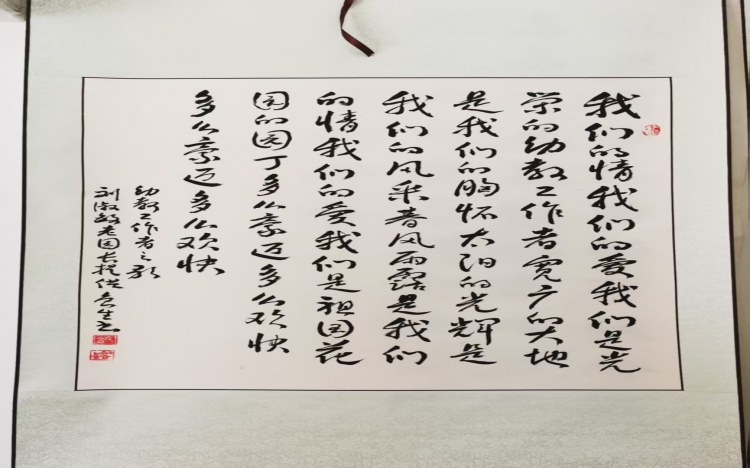 我们的情我们的爱我们是光
荣的幼教工作者宽广的大地
是我们的胸怀太阳的光辉是
我们的风采春风雨露是我们
的情我们的爱我们是祖国花
园的园丁多么豪迈多么欢快
多么豪迈多么欢快
幼教工作者之歌
刘淑敏老园长提供